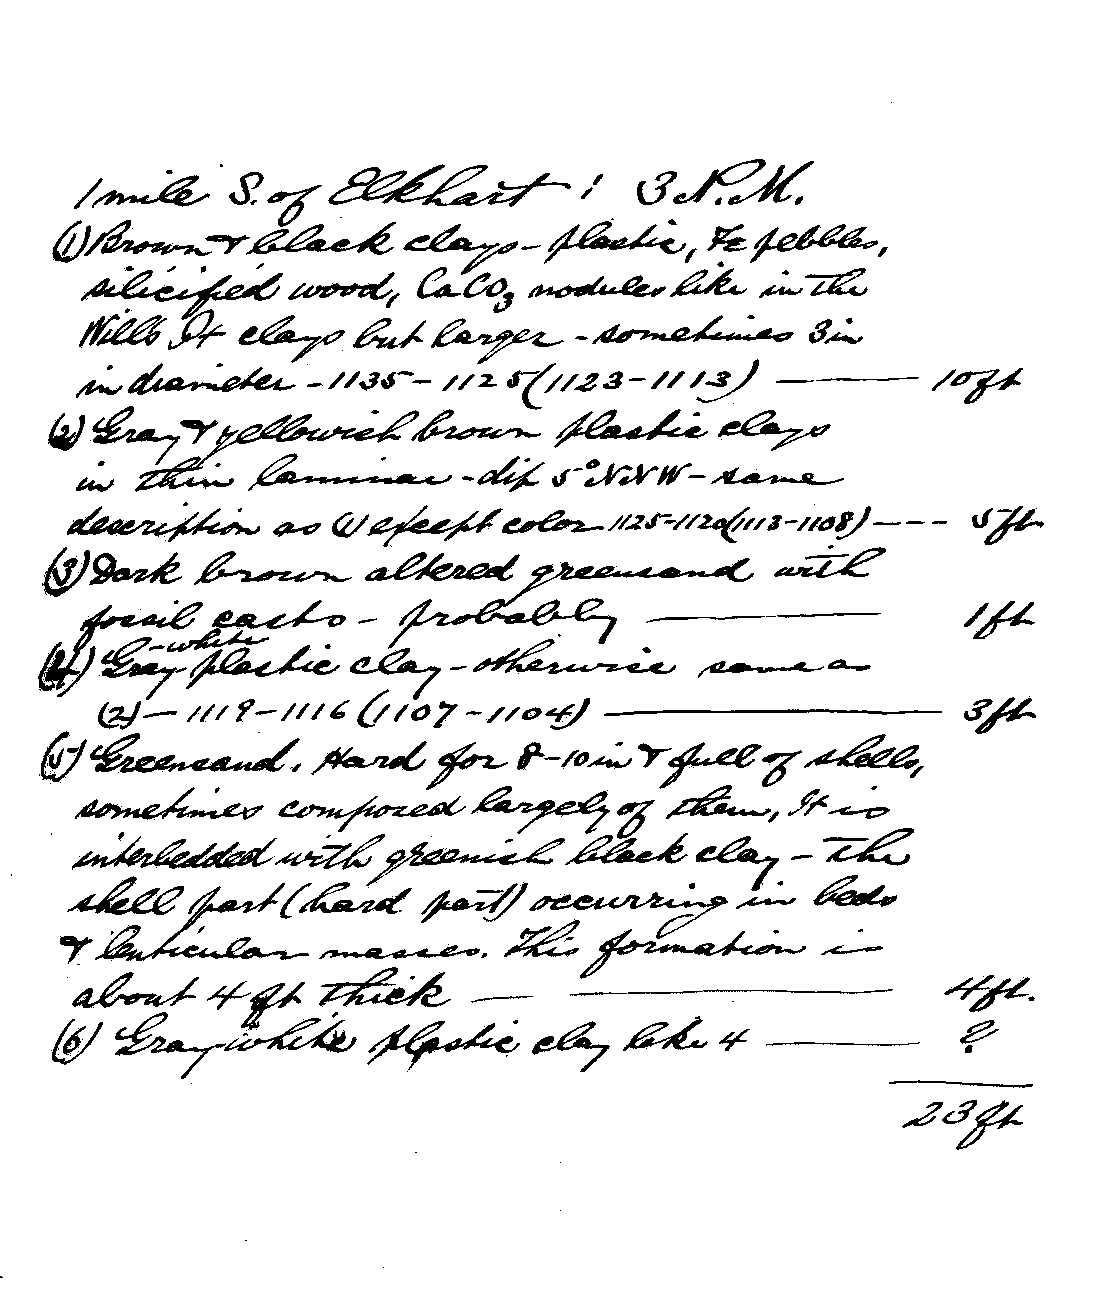 1 mile S. of Elkhart : 3 N.M.
(1) Brown & black clays - plastic, Fe pebbles,
silicified wood, CaCO3 nodules like in the
Wills Pt clays but larger - sometimes 3 in
in diameter - 1135 - 1125 (1123 - 1113) ——— 10 ft
(2) Gray & yellowish brown plastic clays
in thin laminae - dip 5° NNW - same
description as (1) except color 1125-1120 (1113-1108) --- 5 ft
(3) Dark brown altered greensand with
fossil casts - probably ——— 1 ft
(4) Gray-white plastic clay - otherwise same as
(2) - 1119 - 1116 (1107 - 1104) ——— 3 ft
(5) Greensand. Hard for 8-10 in & full of shells,
sometimes composed largely of them, It is
interbedded with greenish black clay - the
shell part (hard part) occurring in beds
& lenticular masses. This formation is
about 4 ft thick ——— 4 ft.
(6) Gray white plastic clay like 4 ——— ?
23 ft